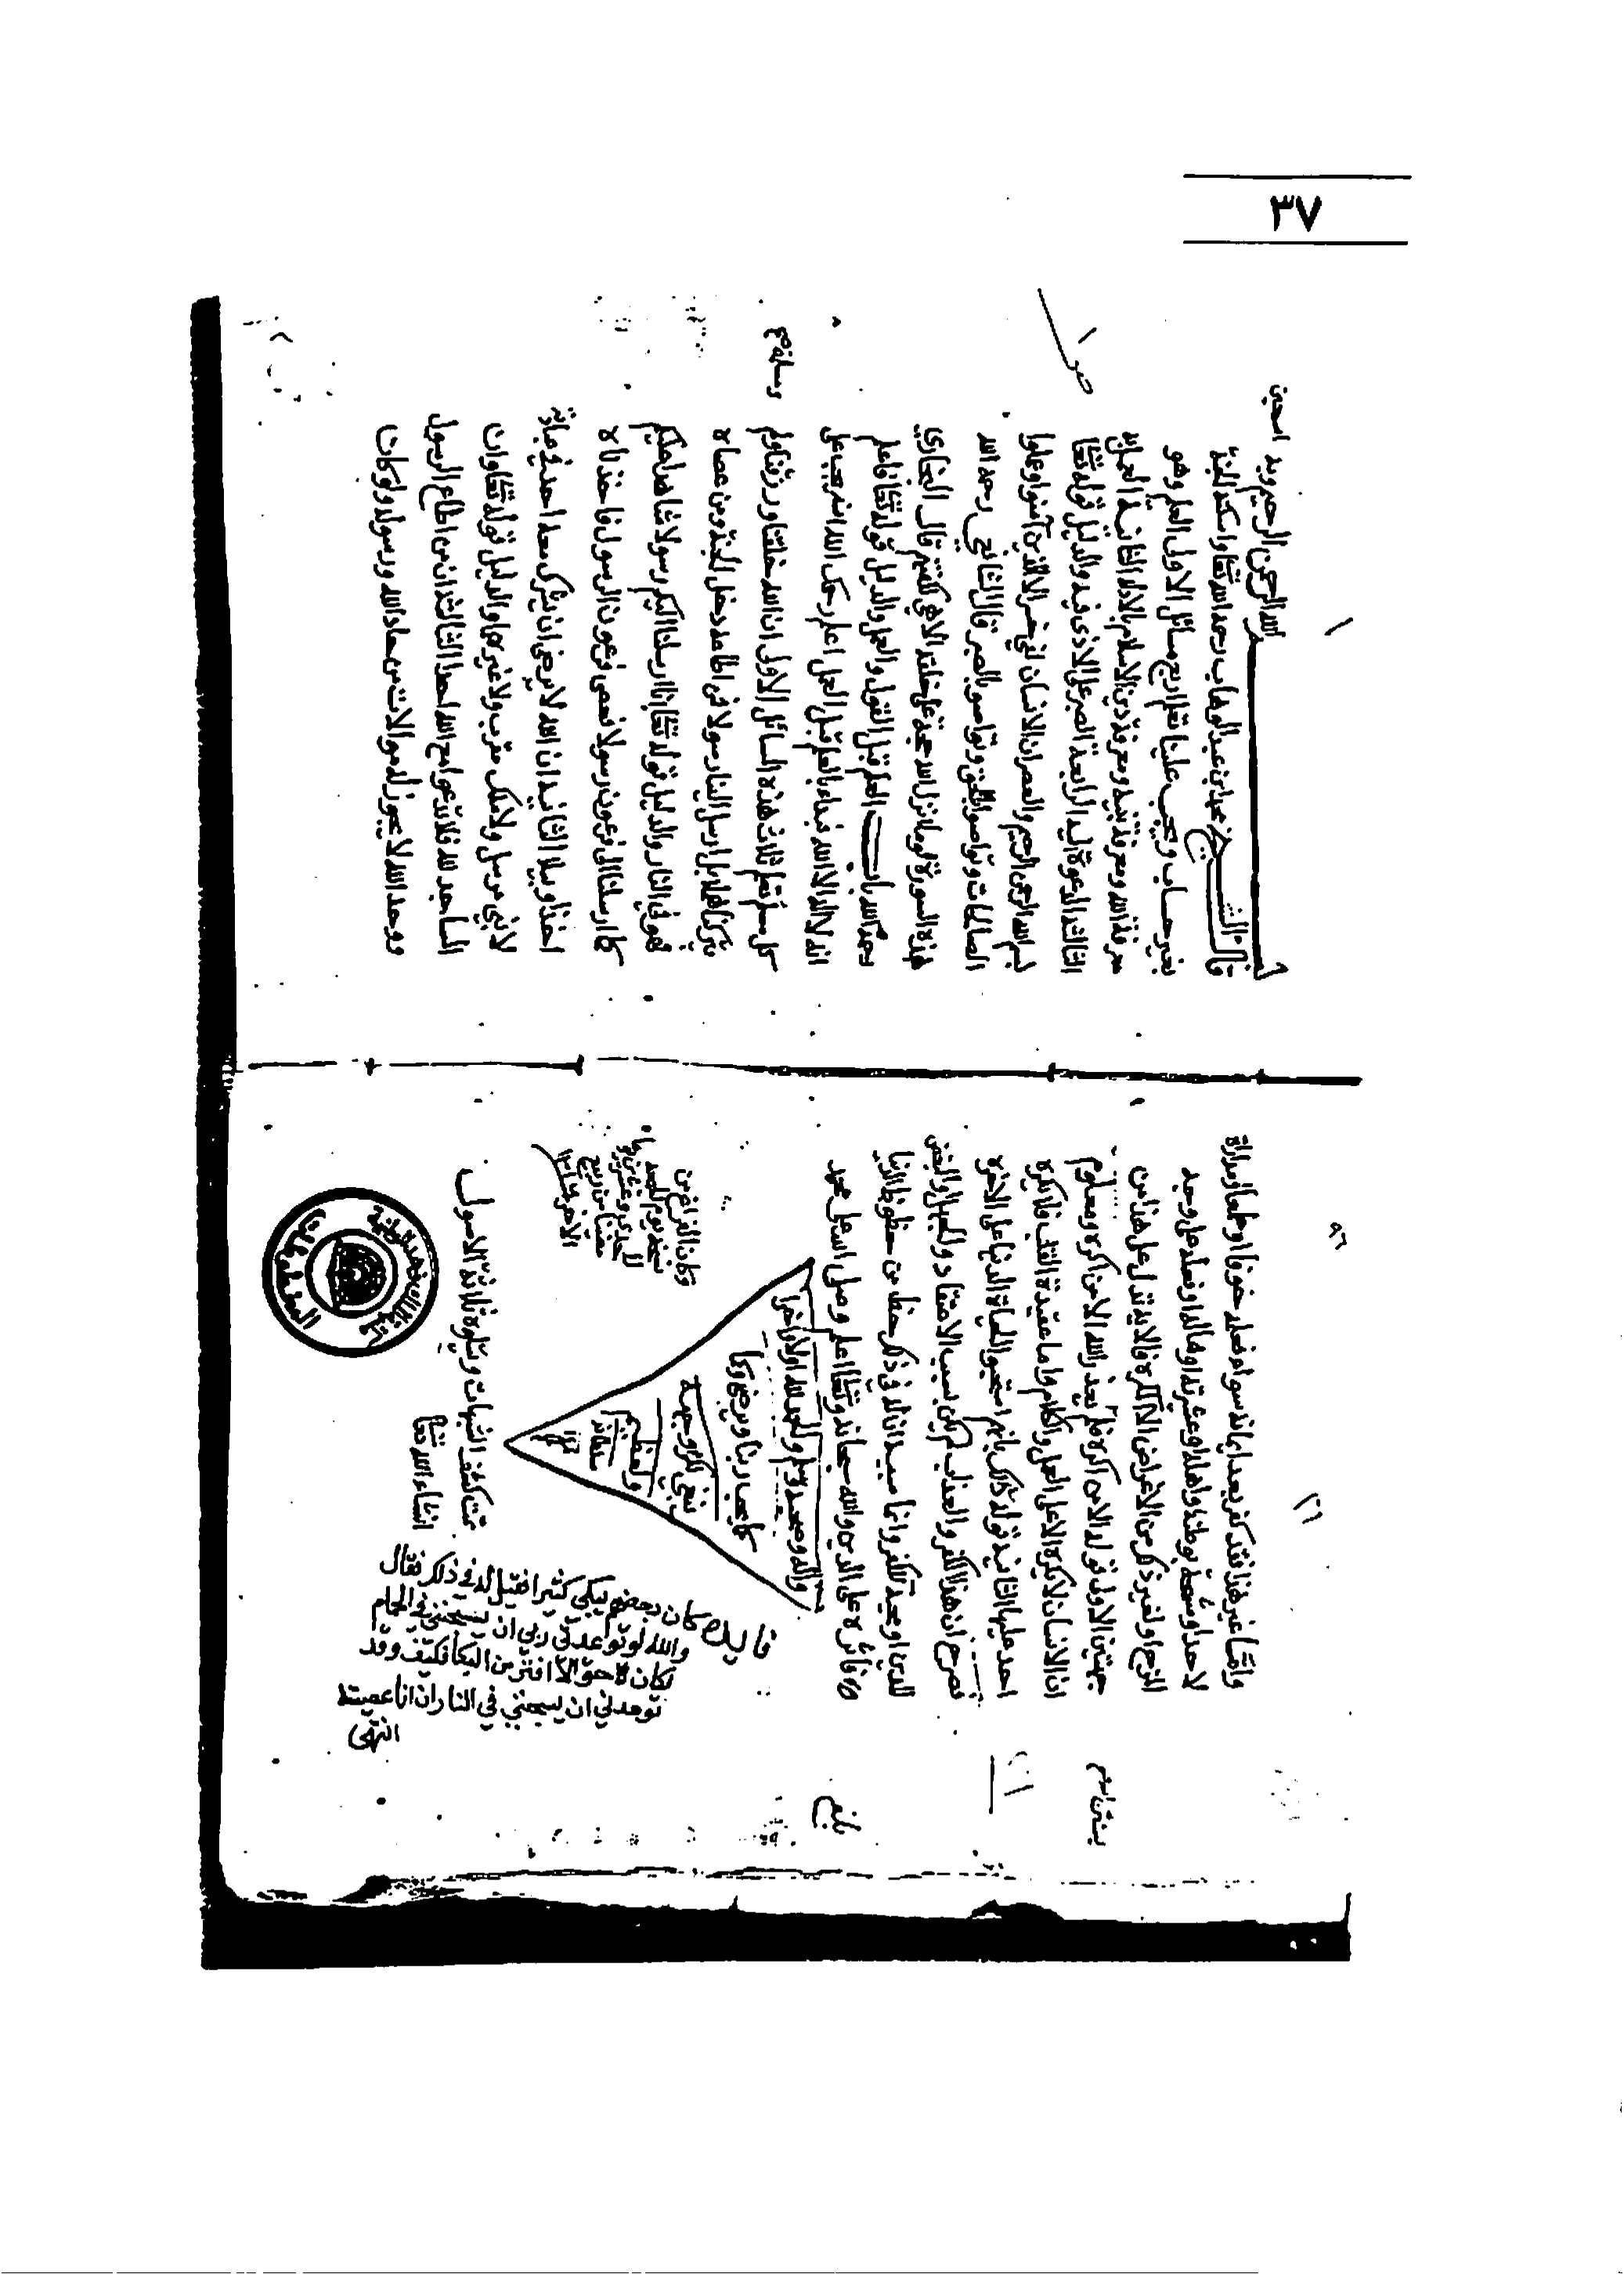 ٣٧
٥٦
٢٦
وأما غير هذا فقد كفر بعد إيمانه سواء فعله خوفا أو طمعا أو مداراة
لاحد او مشحة بوطنه او اهله او عشيرته او ماله او فعله على وجه
المزح او لغير ذلك من الاغراض الا المكره فالاية تدل على هذا من
جهتين الاولى قوله الا من اكره فلم يعذر الله الا من اكره ومعلوم
ان الانسان لا يكره الا على العمل والكلام واما عقيدة القلب فلا يكره
احد عليها الثانية قوله ذلك بانهم استحبوا الحياة الدنيا على الاخرة
فصرح ان هذا الكفر والعذاب لم يكن بسبب الاعتقاد والجهل او البغض
للدين او محبة الكفر وانما سببه ان له في ذلك حظ من حظوظ الدنيا
فاثره على الدين والله سبحانه وتعالى اعلم وصلى الله على محمد
واله وصحبه وسلم والحمد لله اولا واخرا
كما يحب ربنا ويرضى وكما
ينبغي لكرم وجهه
وعظيم
سلطانه
وكان الفراغ من
تمت كشف الشبهات ويتلوه ثلاثة الاصول
ان شاء الله تعالى
فائدة كان بعضهم يبكي كثيرا فقيل له في ذلك فقال
والله لو توعدني ربي ان يسجنني في الحمام
لكان لاحق الا افتر من البكا فكيف وقد
توعدني ان يسجنني في النار ان انا عصيته
انتهى
بلغ
١
بسم الله الرحمن الرحيم وبه استعين
قال الشيخ محمد بن عبد الوهاب رحمه الله تعالى واسكنه الجنة
بغير حساب ويجب علينا تعلم اربع مسائل الاولى العلم وهو
معرفة الله ومعرفة نبيه ومعرفة دين الاسلام بالادلة الثانية العمل به
الثالثة الدعوة اليه الرابعة الصبر على الاذى فيه والدليل قوله تعالى
بسم الله الرحمن الرحيم والعصر ان الانسان لفي خسر الا الذين آمنوا وعملوا
الصالحات وتواصوا بالحق وتواصوا بالصبر قال الشافعي رحمه الله
هذه السورة لو ما انزل الله حجة على خلقه الا هي لكفتهم قال البخاري
رحمه الله باب العلم قبل القول والعمل والدليل قوله تعالى فاعلم
انه لا اله الا الله فبداء بالعلم قبل العمل اعلم رحمك الله انه يجب على
كل مسلم تعلم ثلاث هذه المسائل الاولى ان الله خلقنا ورزقنا ولم
يتركنا هملا بل ارسل الينا رسولا فمن اطاعه دخل الجنة ومن عصاه
فهو في النار والدليل قوله تعالى انا ارسلنا اليكم رسولا شاهدا عليكم
كما ارسلنا الى فرعون رسولا فعصى فرعون الرسول فاخذناه
اخذا وبيلا الثانية ان الله لا يرضى ان يشرك معه احد في عبادته
لا نبي مرسل ولا ملك مقرب ولا غيرهما والدليل قوله تعالى وان
المساجد لله فلا تدعوا مع الله احدا الثالثة ان من اطاع الرسول
ووحد الله لا يجوز له موالات من حاد الله ورسوله ولو كان